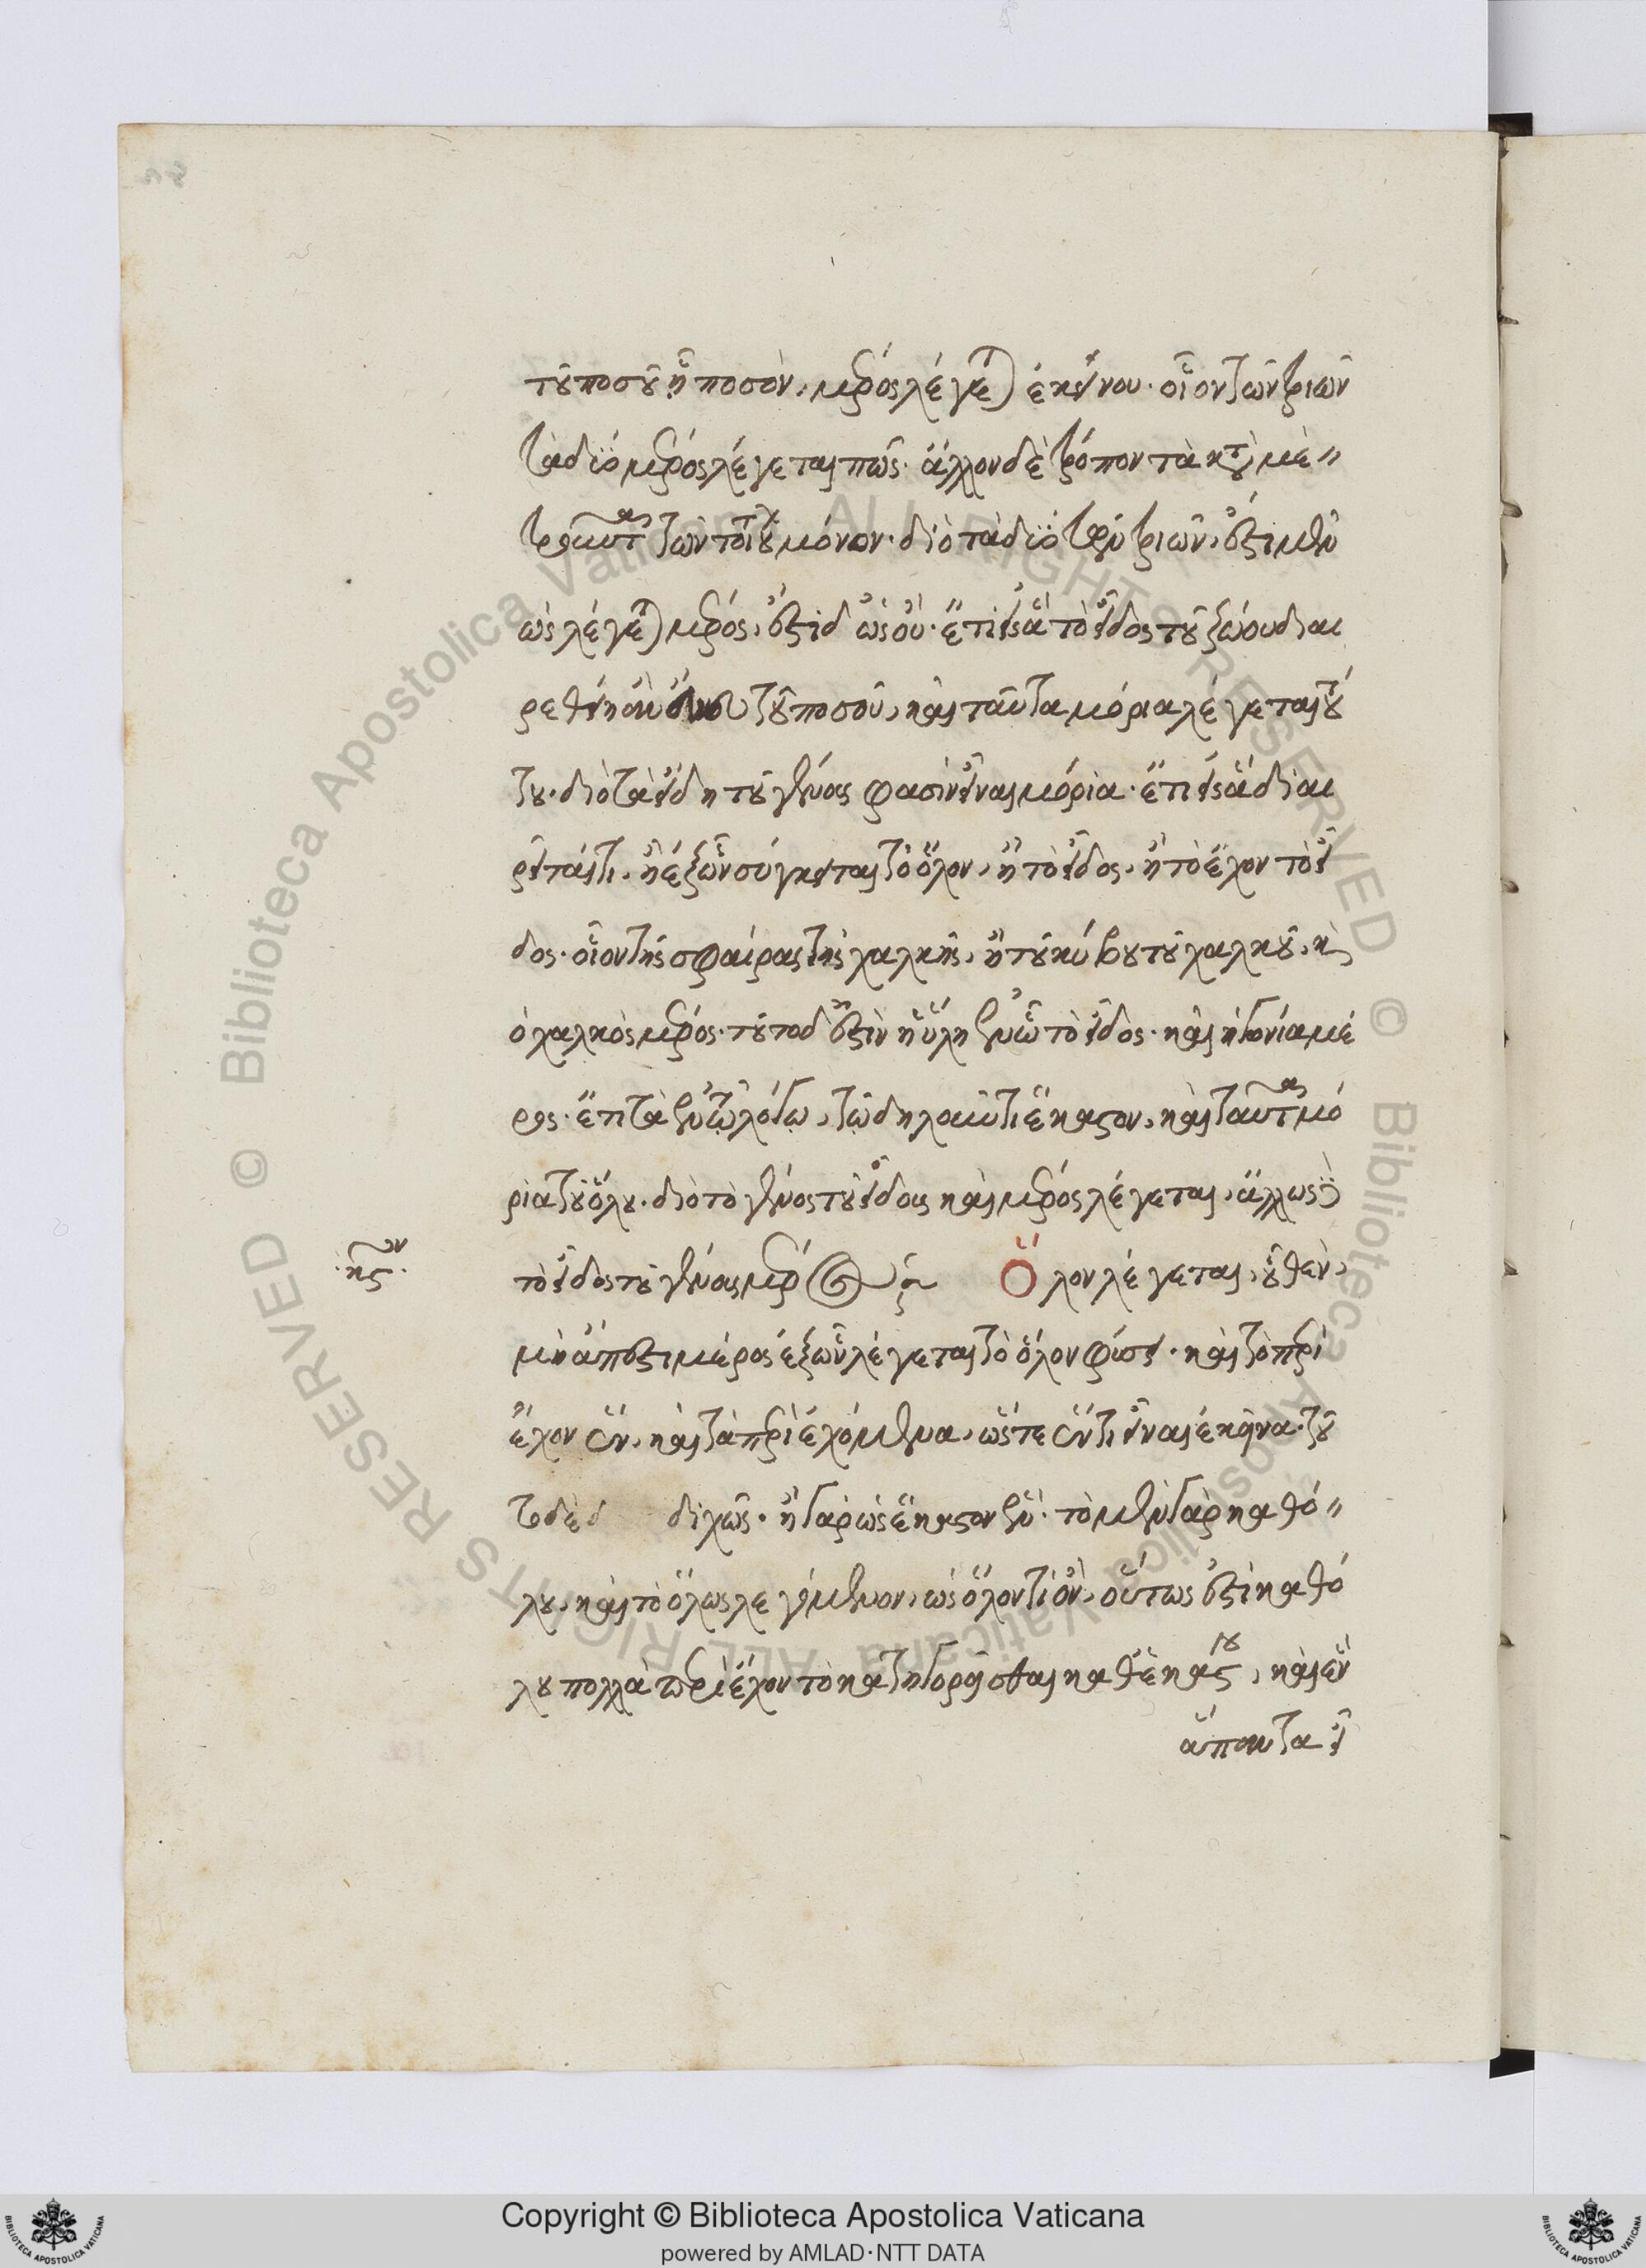 τοῦ ποσοῦ ᾗ ποσὸν, μέρος λέγεται ἐκείνου· οἷον τῶν τριῶν
τὰ δύο μέρος λέγεται πῶς· ἄλλον δὲ τρόπον τὰ κατα μὲ
τροῦντα τῶν τοιούτων μόνον· διὸ τὰ δύο τῶν τριῶν, ἔστι μὲν
ὡς λέγεται μέρος, ἔστι δ ὡς οὔ· ἔτι εἰς ἃ τὸ εἶδος τοῦ ζώου διαι
ρεθείη ἂν ἄνευ τοῦ ποσοῦ, καὶ ταῦτα μόρια λέγεται τού
του· διὸ τὰ εἴδη τοῦ γένους φασὶν εἶναι μόρια· ἔτι εἰς ἃ διαι
ρεῖται τι, ἢ ἐξ ὧν σύγκειται τὸ ὅλον, ἢ τὸ εἶδος, ἢ τὸ ἔχον τὸ εἶ
δος· οἷον τῆς σφαίρας τῆς χαλκῆς, ἢ τοῦ κύβου τοῦ χαλκοῦ, καὶ
ὁ χαλκὸς μέρος· τοῦτο δ ἐστὶν ἡ ὕλη ἐν ᾧ τὸ εἶδος· καὶ ἡ γωνία μέ
ρος· ἔτι τὰ ἐν τῷ λόγῳ, τῷ δηλοῦντι ἕκαστον, καὶ ταῦτα μό
ρια τοῦ ὅλου· διὸ τὸ γένος τοῦ εἴδους καὶ μέρος λέγεται, ἄλλως δὲ
τὸ εἶδος τοῦ γένους μέρος Ὅλον λέγεται, οὗ θεν,
μὴ ἄπεστι μέρος ἐξ ὧν λέγεται τὸ ὅλον φύσει· καὶ τὸ περι
έχον ἓν, καὶ τὰ περιεχόμενα, ὥστε ἕν τι εἶναι ἐκεῖνα· τοῦ
το δὲ διχῶς· ἢ γὰρ ὡς ἕκαστον ἕν· τὸ μὲν γὰρ καθό
λου, καὶ τὸ ὅλως λεγόμενον, ὡς ὅλον τι ὂν, οὕτως ἐστὶ καθό
λου πολλὰ περιέχον τὸ κατηγορεῖσθαι καθ ἑκάστου, καὶ ἓν
ἅπαντα εἶ